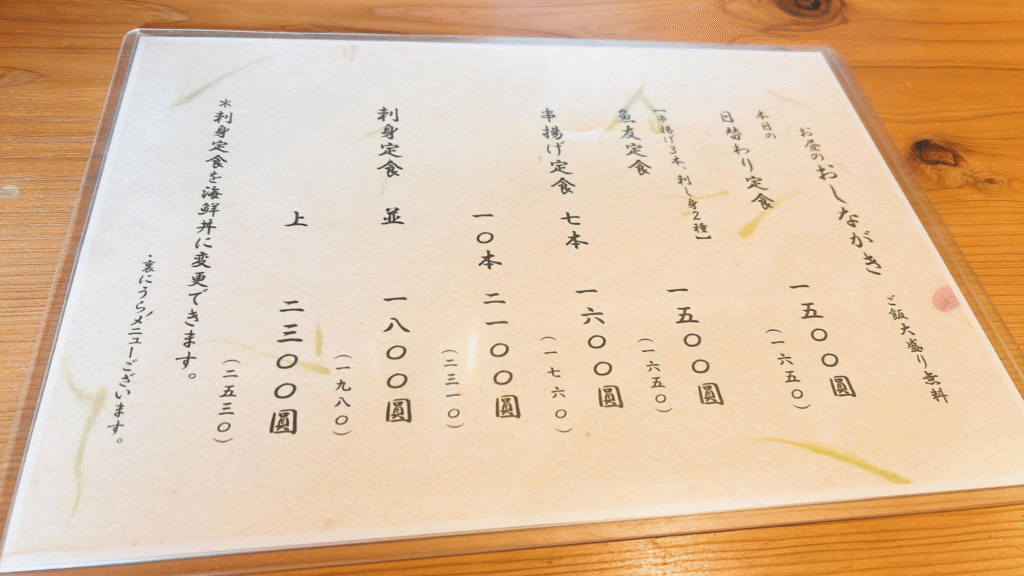 お昼のおしながき
ご飯大盛り無料
本日の
日替わり定食
一五〇〇圓
(一六五〇)
【串揚げ3本、刺し身2種】
魚友定食
一五〇〇圓
(一六五〇)
串揚げ定食 七本
一六〇〇圓
(一七六〇)
一〇本
二一〇〇圓
(二三一〇)
刺身定食 並
一八〇〇圓
(一九八〇)
上
二三〇〇圓
(二五三〇)
*刺身定食を海鮮丼に変更できます。
・裏にうらメニューございます。